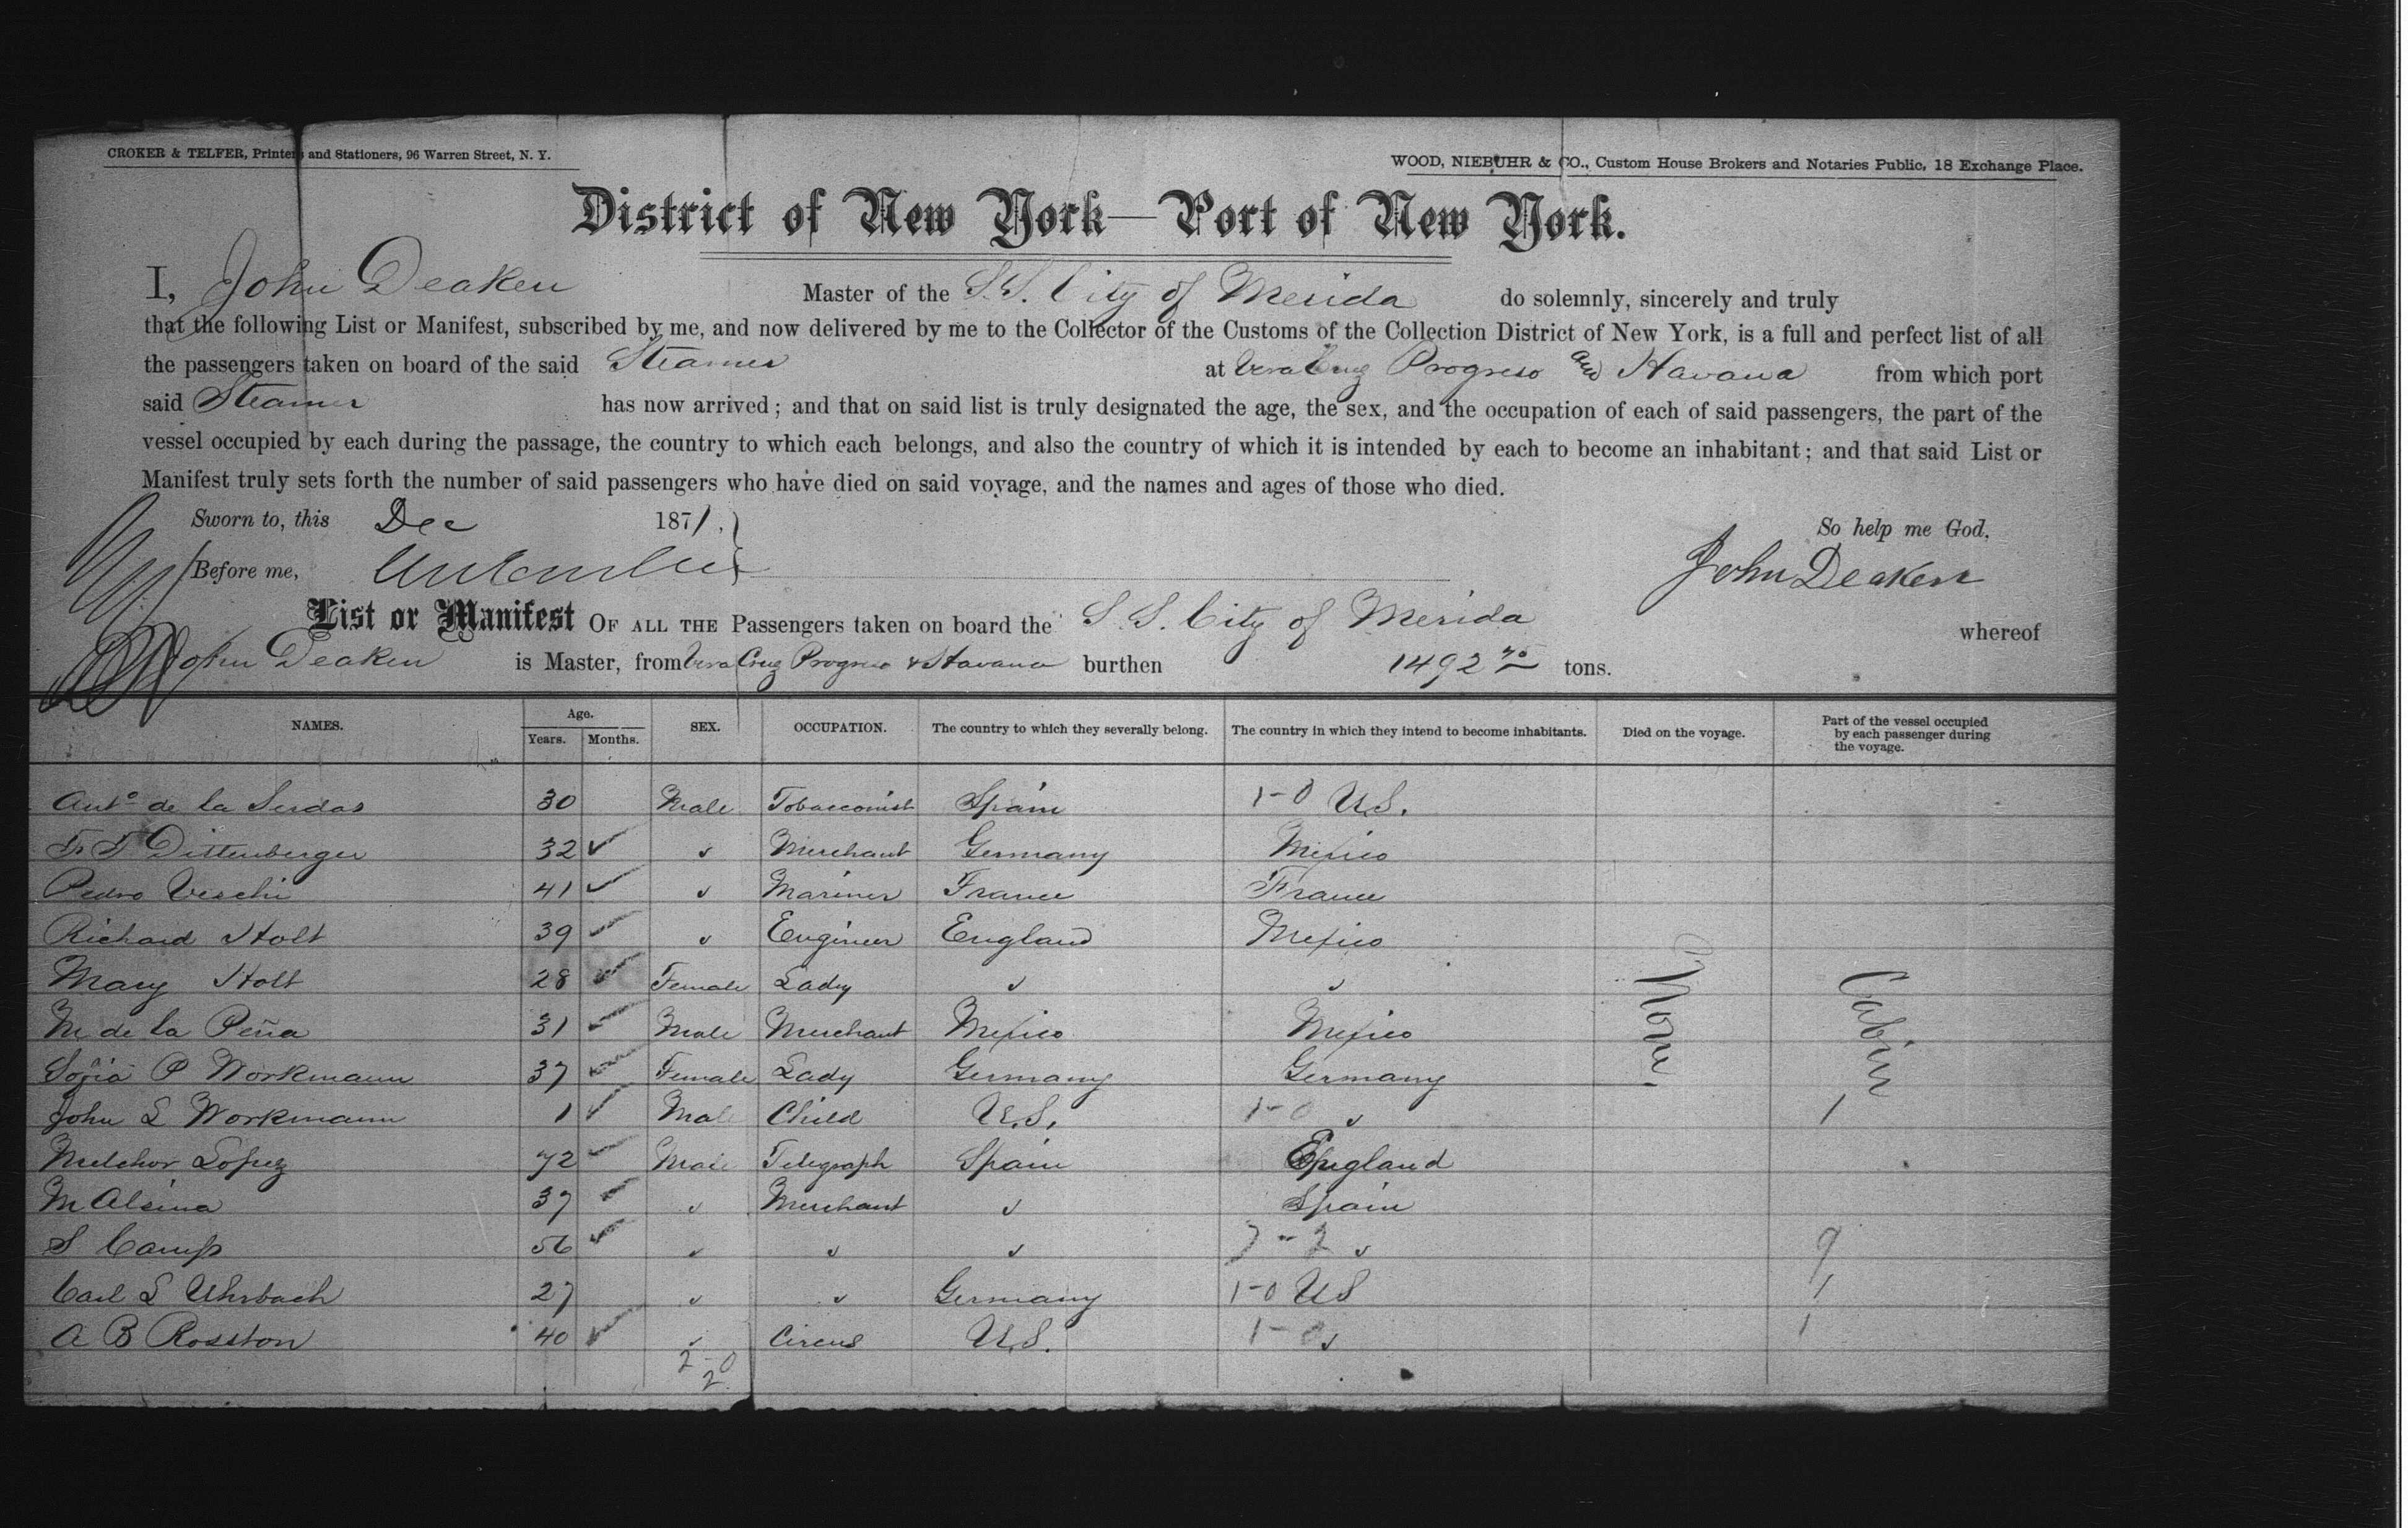 CROKER & TELFER, Printers and Stationers, 96 Warren Street, N. Y.
WOOD, NIEBUHR & CO., Custom House Brokers and Notaries Public, 18 Exchange Place.
District of New York—Port of New York.
I, John Deaken Master of the S.S. City of Merida do solemnly, sincerely and truly
that the following List or Manifest, subscribed by me, and now delivered by me to the Collector of the Customs of the Collection District of New York, is a full and perfect list of all
the passengers taken on board of the said Steamer at Vera Cruz Progreso and Havana from which port
said Steamer has now arrived; and that on said list is truly designated the age, the sex, and the occupation of each of said passengers, the part of the
vessel occupied by each during the passage, the country to which each belongs, and also the country of which it is intended by each to become an inhabitant; and that said List or
Manifest truly sets forth the number of said passengers who have died on said voyage, and the names and ages of those who died.
Sworn to, this Dec 1871. So help me God,
Before me, John Deaken
List or Manifest OF ALL THE Passengers taken on board the S.S. City of Merida whereof
John Deaken is Master, from Vera Cruz Progreso & Havana burthen 1492 tons.
NAMES. Age. Years. Months. SEX. OCCUPATION. The country to which they severally belong. The country in which they intend to become inhabitants. Died on the voyage. Part of the vessel occupied by each passenger during the voyage.
Anto de la Serdas 30 Male Tobacconist Spain 1-0 U.S.
F. F. Dittenberger 32 ✓ ✓ Merchant Germany Mexico
Pedro Veschi 41 ✓ ✓ Mariner France France
Richard Holt 39 ✓ ✓ Engineer England Mexico
Mary Holt 28 ✓ Female Lady ✓ ✓
M de la Peña 31 ✓ Male Merchant Mexico Mexico
Sofia P Workmann 37 ✓ Female Lady Germany Germany
John L Workmann 1 ✓ Male Child U.S. 1-0 ✓ 1
Melchor Lopez 72 ✓ Male Telegraph Spain England
M Alsina 37 ✓ ✓ Merchant ✓ Spain
S Camp 56 ✓ ✓ ✓ ✓ ✓ 9
Carl L Uhrbach 27 ✓ ✓ Germany 1-0 US 1
A B Rosston 40 ✓ ✓ Circus U.S. 1-0 ✓ 1
2-0
2
None
Cabin